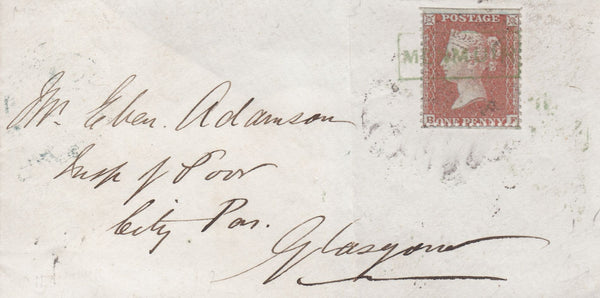 POSTAGE
B F
ONE PENNY
Mr Eben. Adamson
Insp of Poor
City Par.
Glasgow